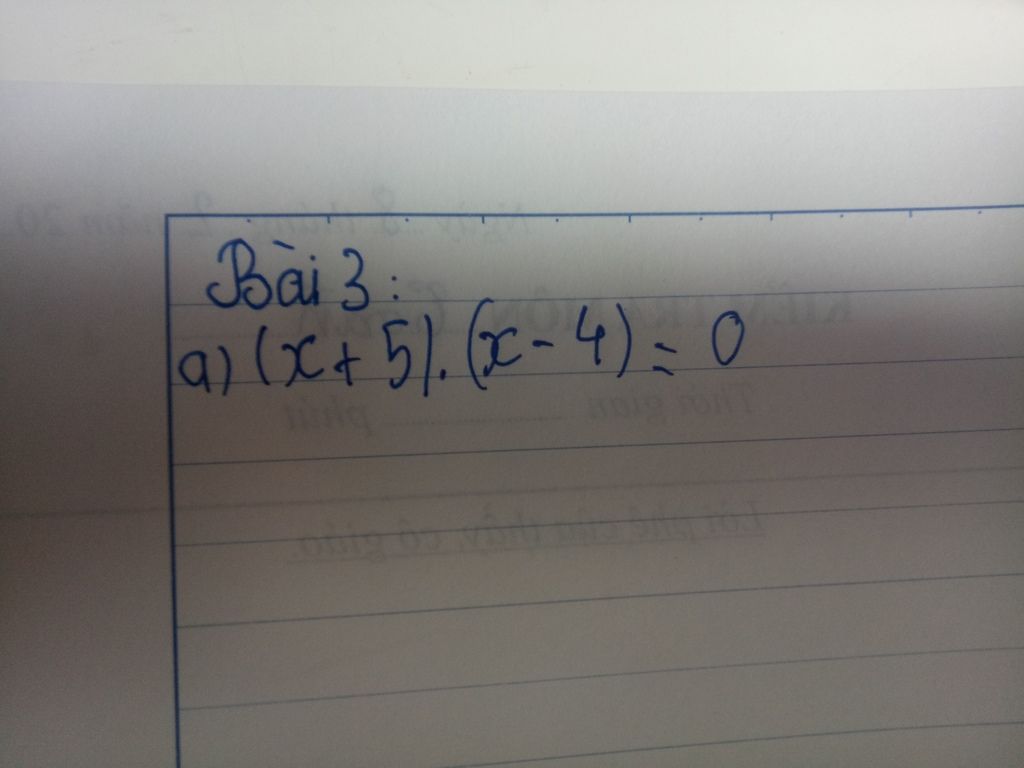 Bài 3:
a) (x + 5).(x - 4) = 0